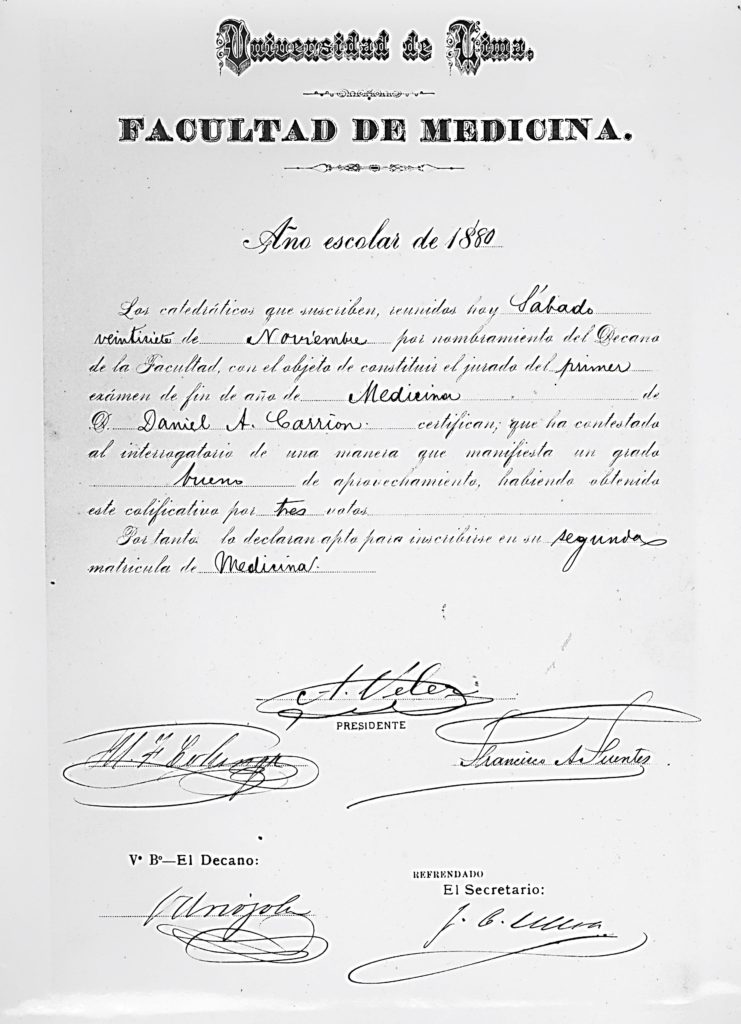 Universidad de Lima.
FACULTAD DE MEDICINA.
Año escolar de 1880
Los catedráticos que suscriben, reunidos hoy Sábado
veintisiete de Noviembre por nombramiento del Decano
de la Facultad, con el objeto de constituir el jurado del primer
exámen de fin de año de Medicina de
D. Daniel A. Carrion. certifican; que ha contestado
al interrogatorio de una manera que manifiesta un grado
bueno de aprovechamiento, habiendo obtenido
este calificativo por tres votos
Por tanto lo declaran apto para inscribirse en su segunda
matricula de Medicina.
A. Velez
PRESIDENTE
M. F.
Francisco A. Fuentes
V° B°—El Decano:
REFRENDADO
El Secretario: